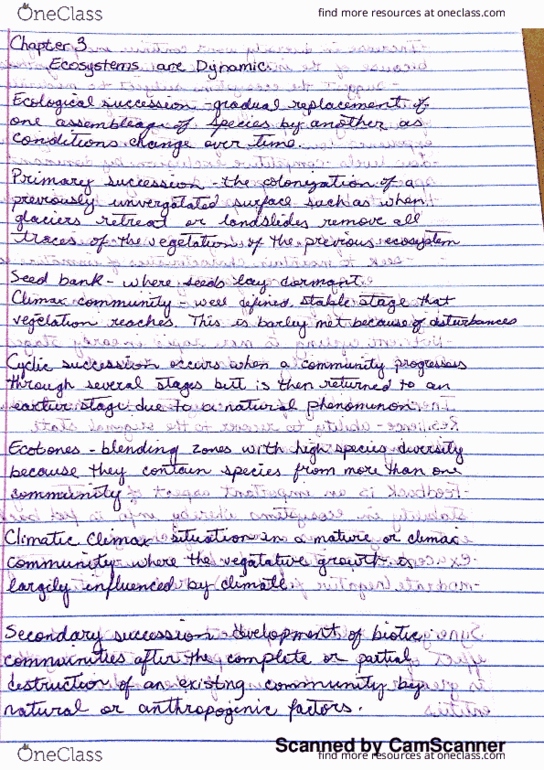 OneClass
find more resources at oneclass.com
Chapter 3
Ecosystems are Dynamic
Ecological succession - gradual replacement of
one assembleage of species by another as
conditions change over time.
Primary succession - the colonization of a
previously unvergatated surface such as when
glaciers retreat or landslides remove all
traces of the vegetation of the previous ecosystem
Seed bank - where seeds lay dormant.
Climax community - well defined, stable stage that
vegetation reaches. This is barley met because of disturbances
Cyclic succession occurs when a community progresses
through several stages but is then returned to an
earlier stage due to a natural phenomenon.
Ecotones - blending zones with high species diversity
because they contain species from more than one
community
Climatic Climax situation in a mature or climax
community where the vegatative growth is
largely influenced by climate.
Secondary succession development of biotic
communities after the complete or partial
destruction of an existing community by
natural or anthropogenic factors.
Scanned by CamScanner
OneClass
find more resources at oneclass.com